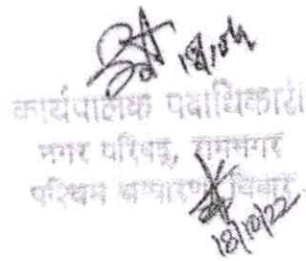 18/10/22
कार्यपालक पदाधिकारी
नगर परिषद्, रामनगर
पश्चिम चम्पारण (बिहार)
18/10/22